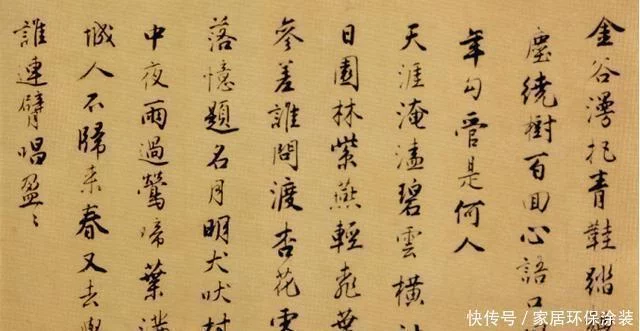 金谷漫青鞋踏
塵繞樹百回心語口
年勾管是何人
天涯淹溘碧雲橫社
日園林紫燕輕桃葉
參差誰問渡杏花零
落憶題名月明犬吠村
中夜雨過鶯啼葉滿
城人不歸來春又去與
誰連臂唱盈々
快传号/家居环保涂装